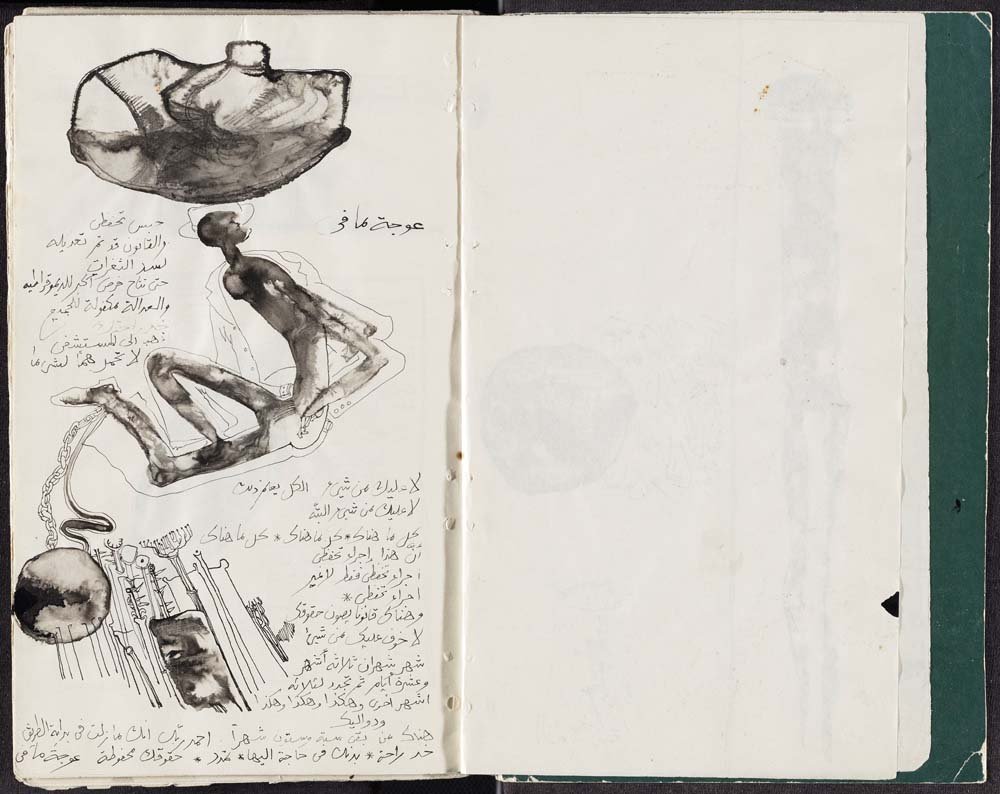 عوجة مافى
حبس تحفظى
والقانون قد تم تعديله
لسد الثغرات
حتى تتاح فرص أكبر للديموقراطيه
والعدالة مكفولة للجميع
اذهب الى المستشفى
لا تحمل هماً لشى ما
لا عليك من شيئ الكل يعلم ذلك
لا عليك من شيئ البتة
كل ما هناك * كل ما هناك * كل ما هناك
أن هذا إجراء تحفظى
اجراء تحفظى فقط لاغير
اجراء تحفظى *
وهناك قانونا يصون حقوقك
لا خوف عليك من شيئ
شهر شهران ثلاثه أشهر
وعشرة أيام ثم تجدد لثلاثه
اشهر اخرى وهكذا وهكذا وهكذا
ودواليك
هناك من بقى ستة وستون شهراً احمد ربك انك مازلت فى بداية الطريق
خد راحة * بدنك فى حاجة اليها * تمدد * حقوقك محفوظة عوجة مافى